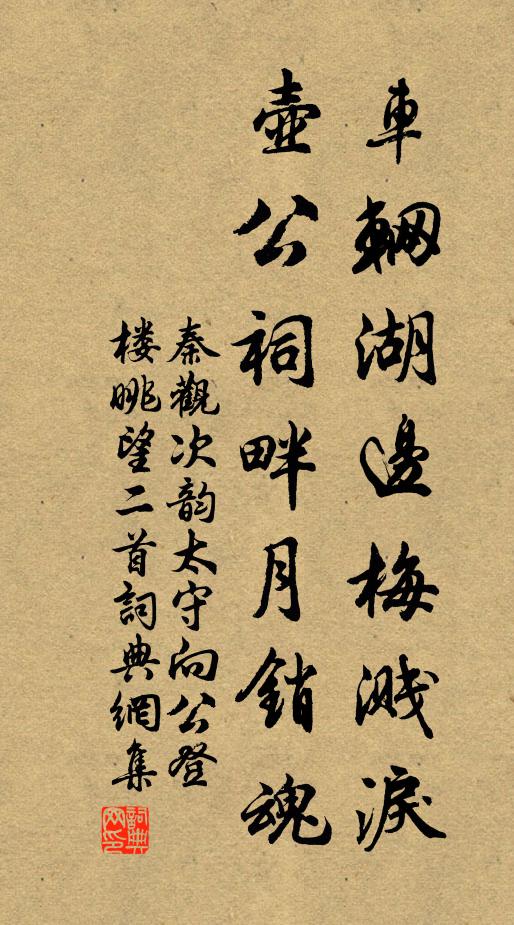 車輞湖邊梅溅淚
壺公祠畔月銷魂
秦觀次韵太守向公登
楼眺望二首詞典網集
詞典
网印